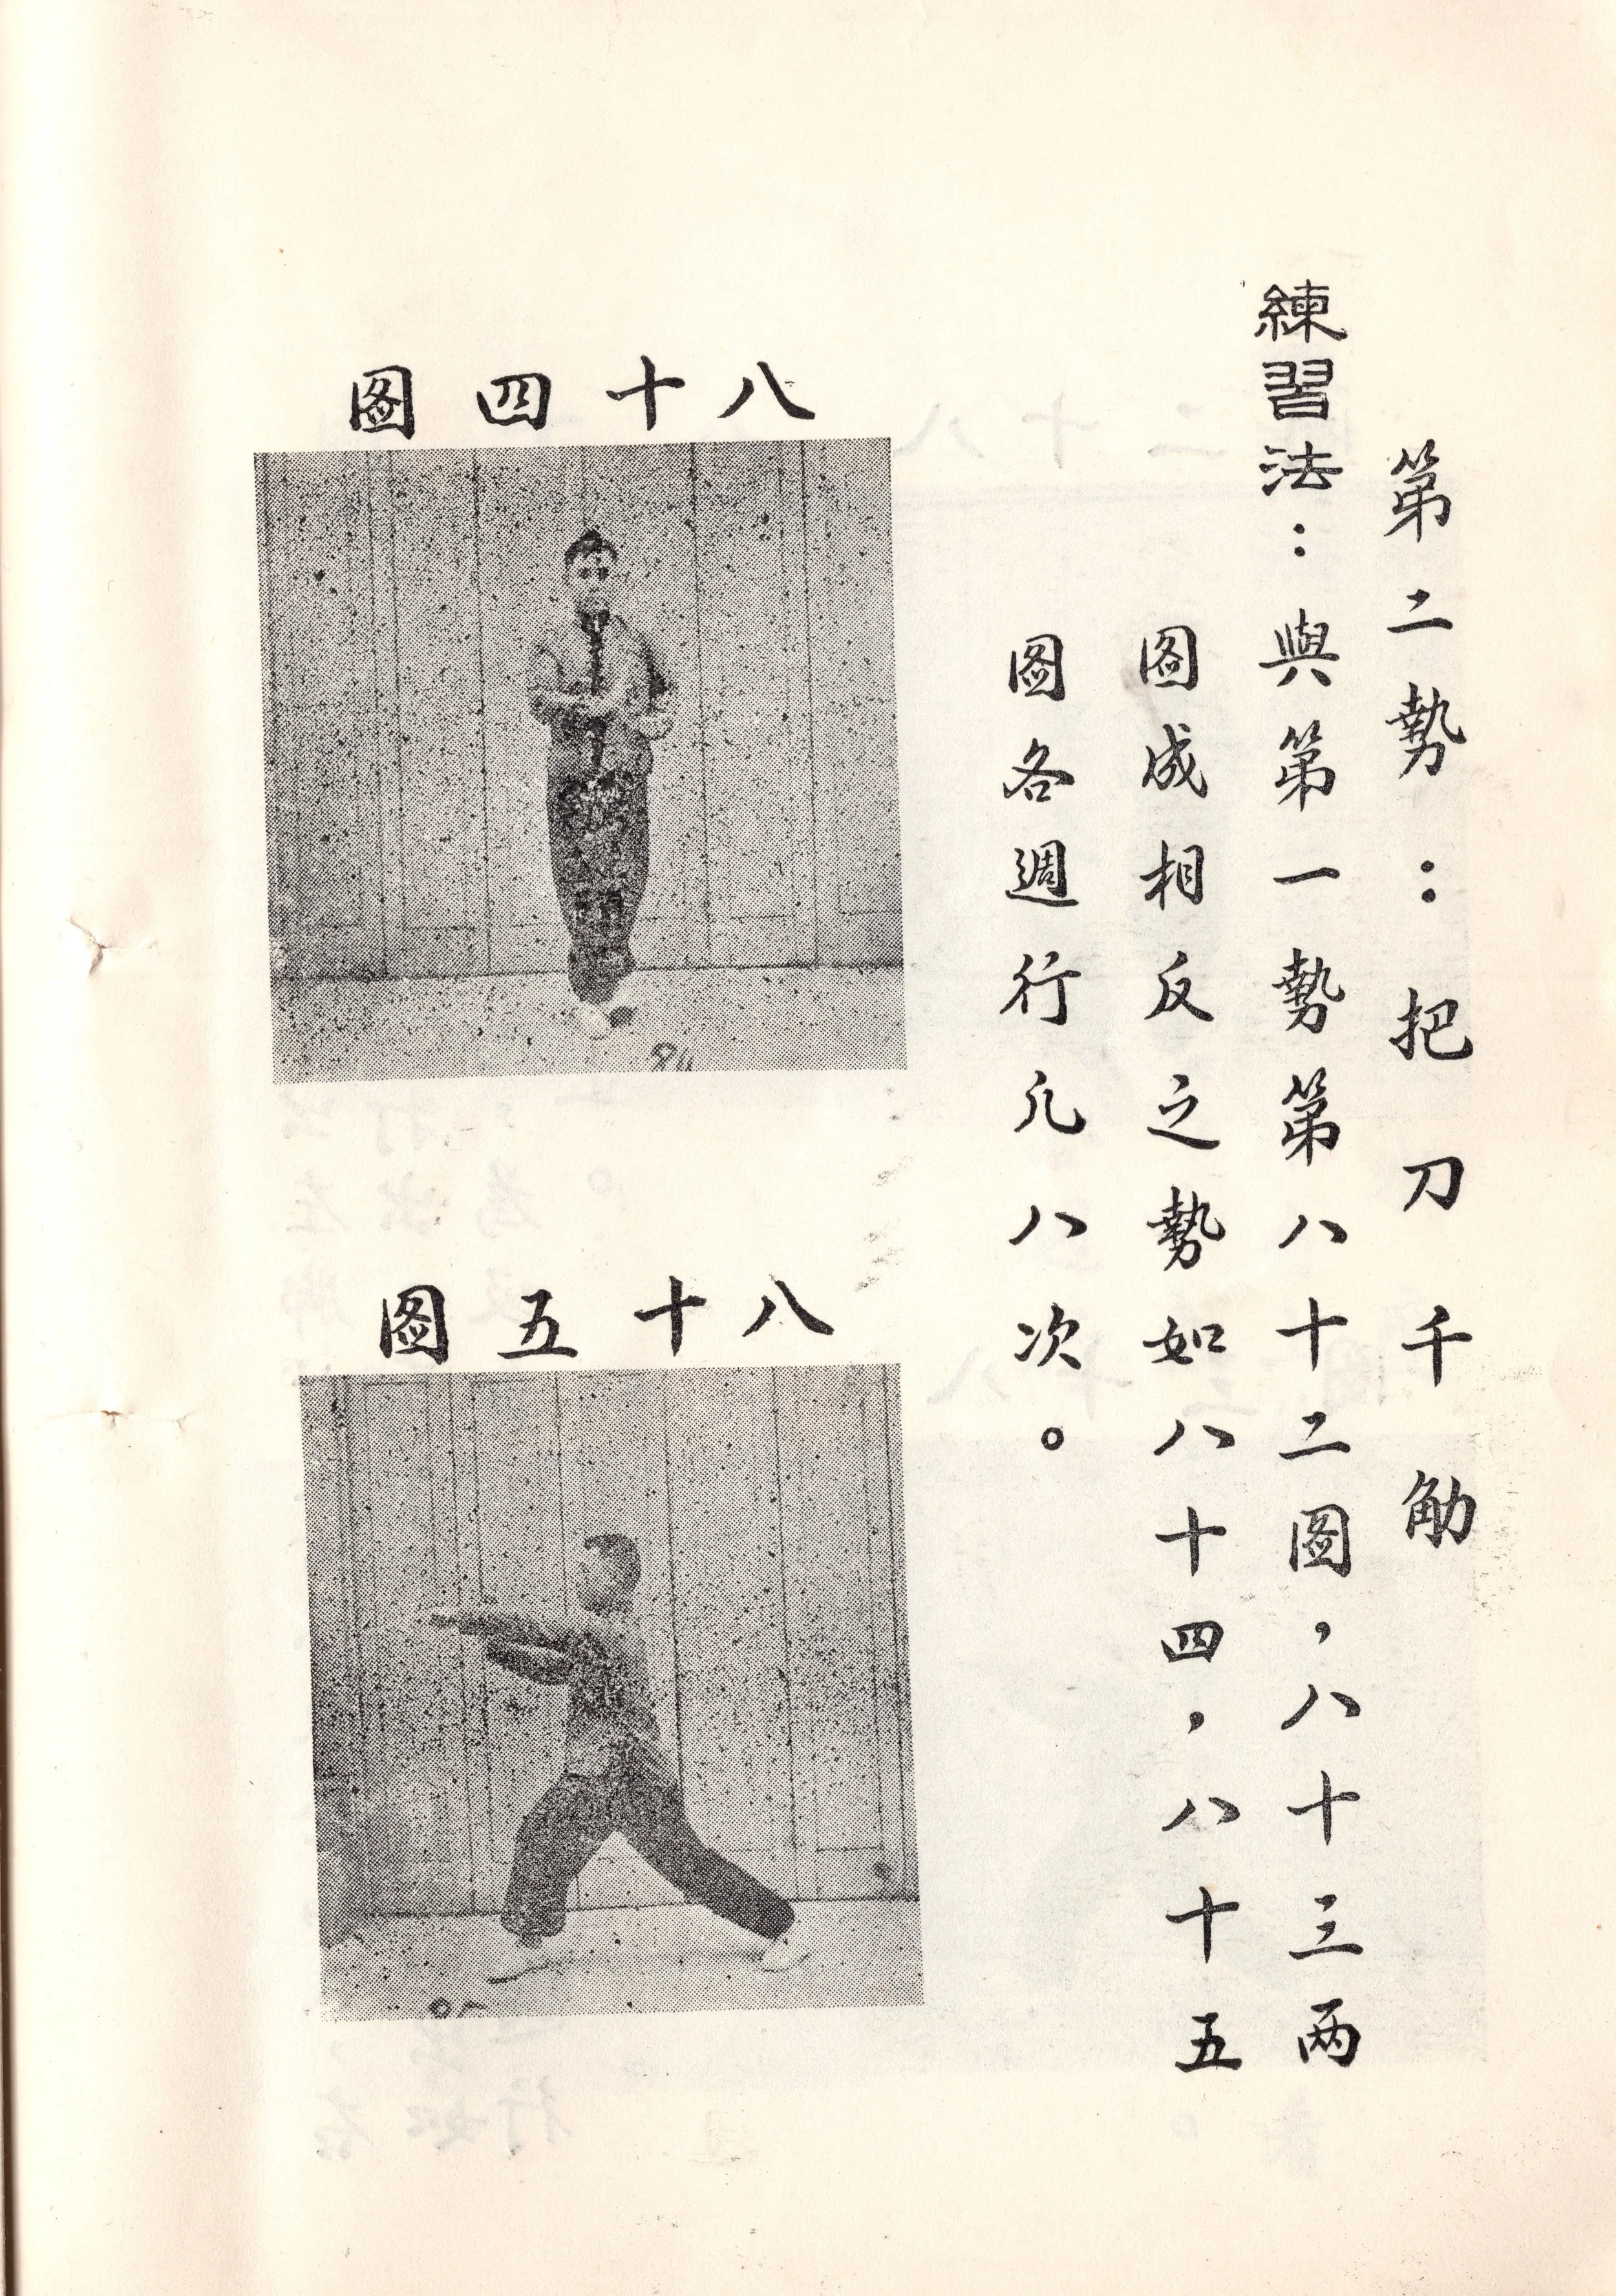 第二勢：把刀千觔
練習法：與第一勢第八十二圖，八十三两
圖成相反之勢如八十四，八十五
圖各週行凢八次。
八十四圖
八十五圖